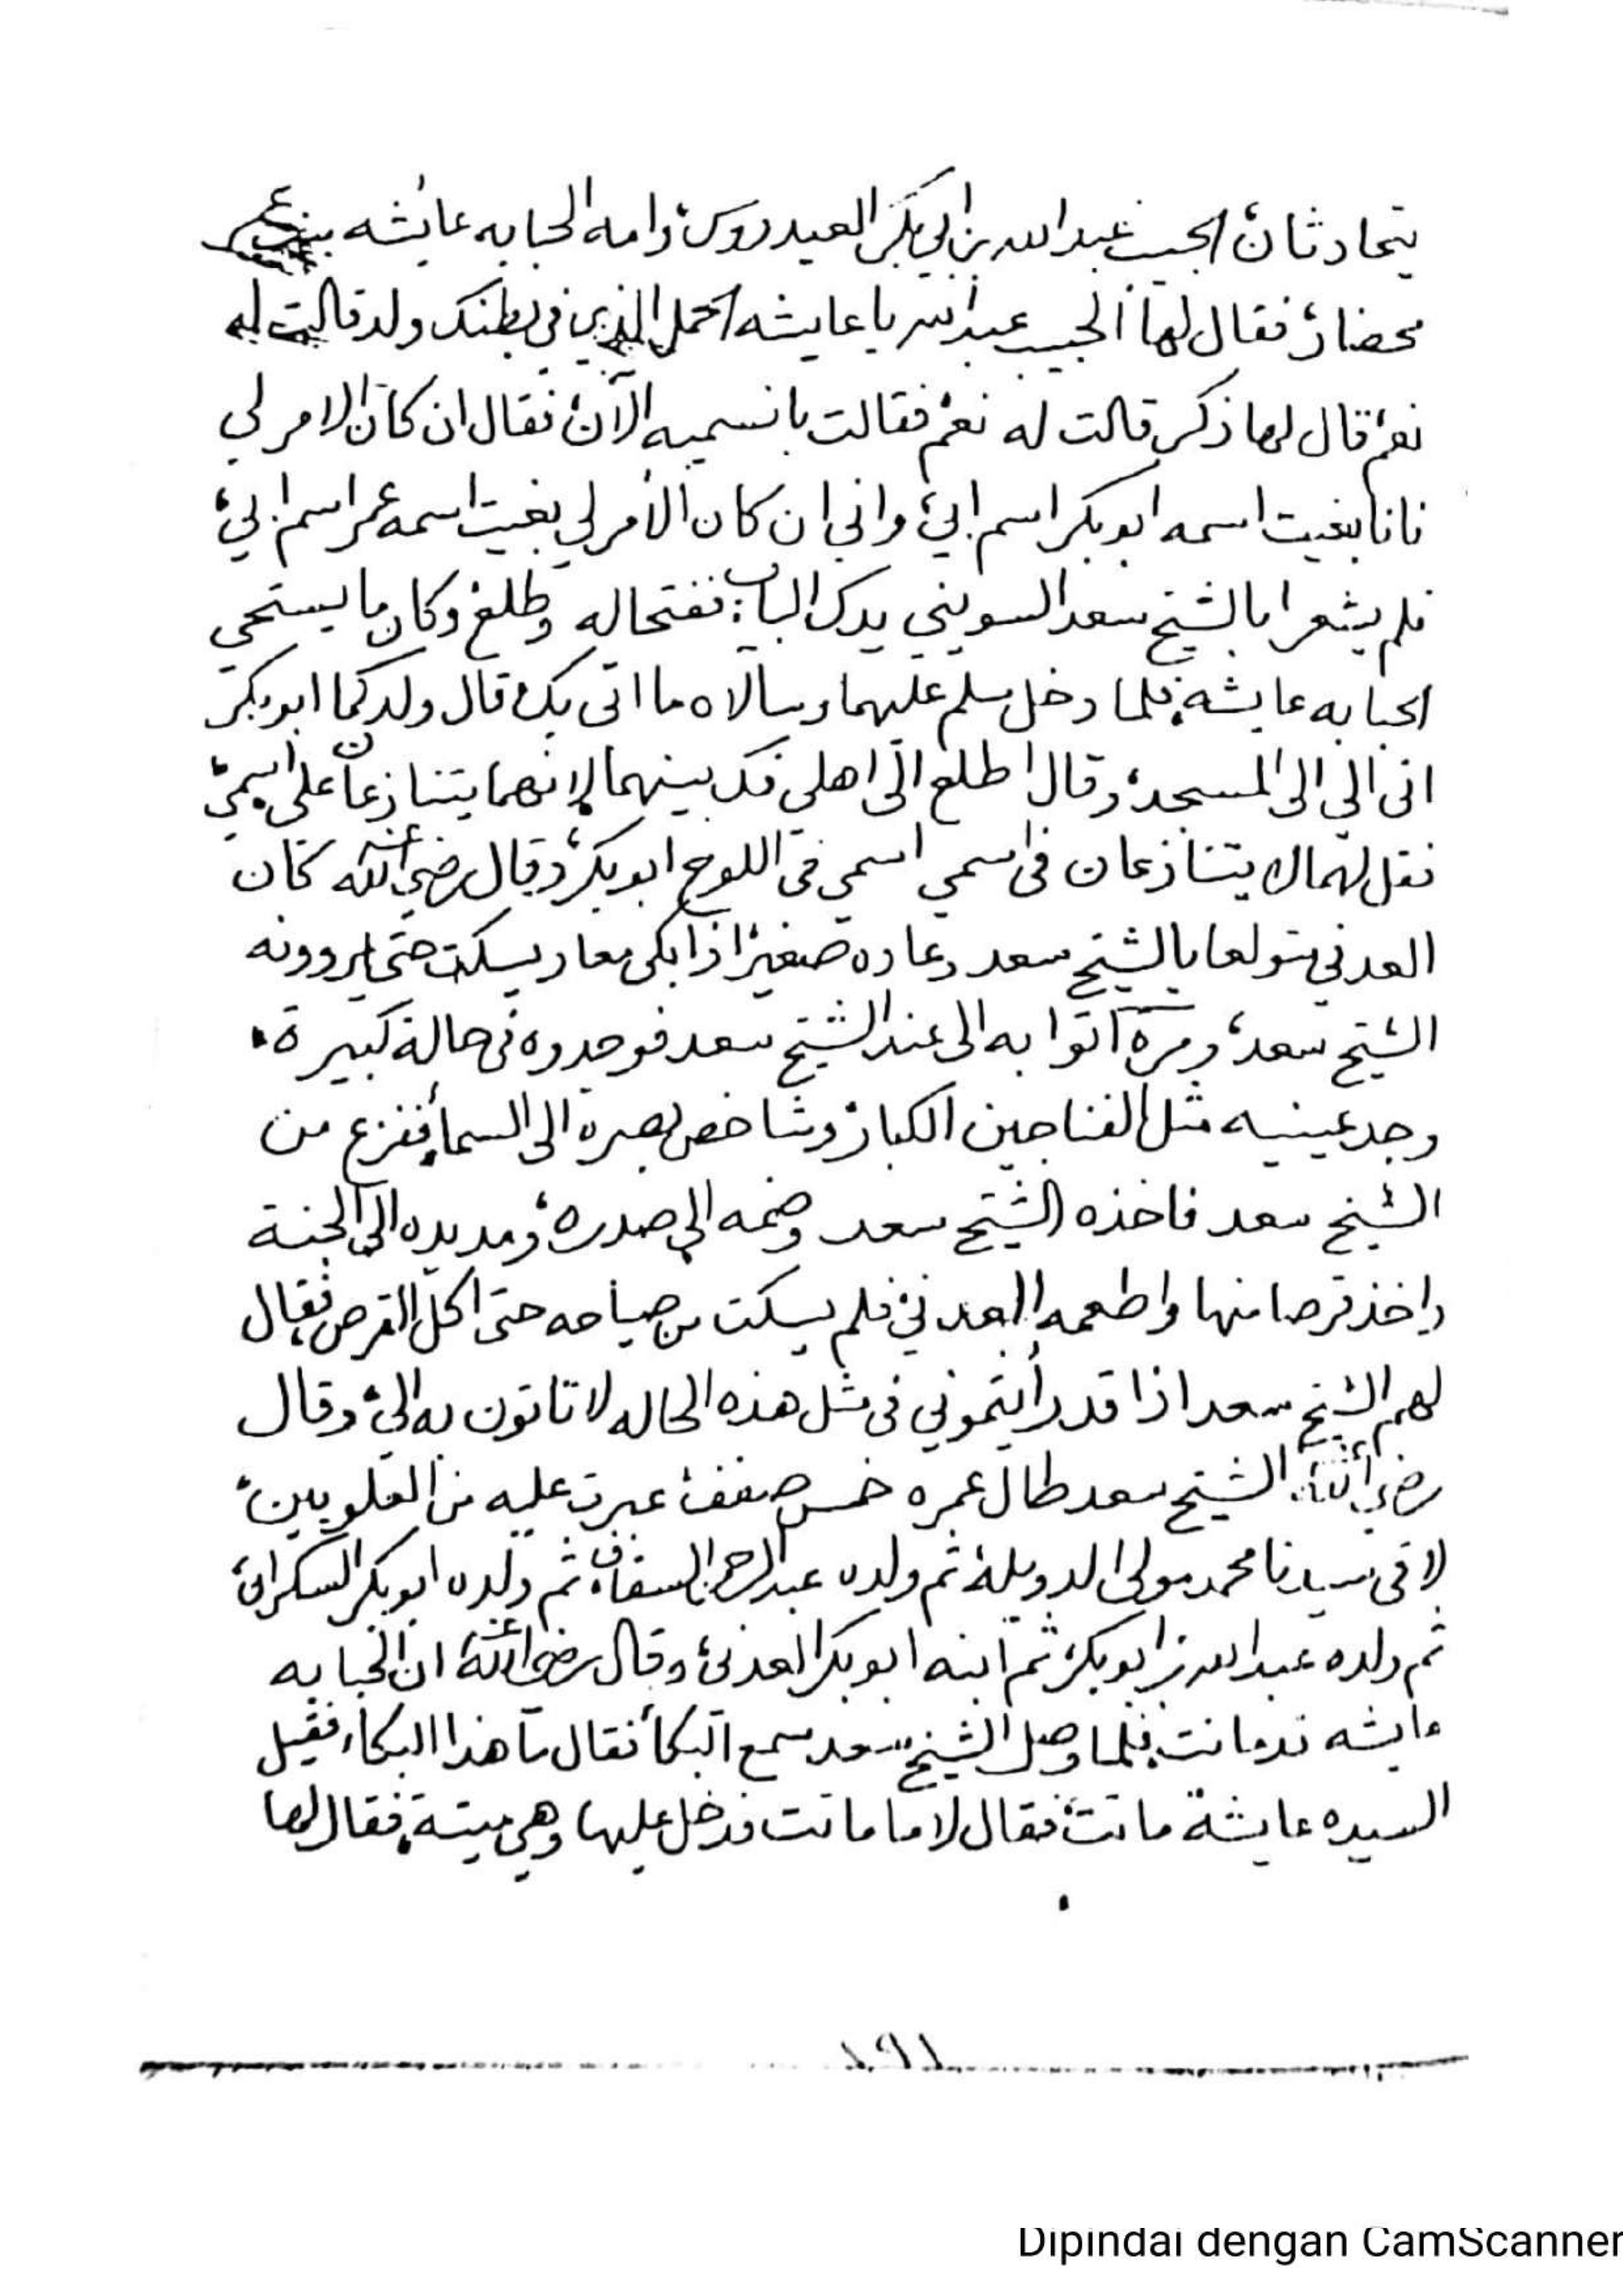 يتحادثان الحبيب عبدالله بن ابي بكر العيدروس، وامه الحبابه عائشه بنت عمر
محضار، فقال لها الحبيب عبدالله يا عايشه الحمل الذي في بطنك ولد قالت له
نعم، قال لها ذكر قالت له نعم، فقالت بانسميه الآن، فقال ان كان الامر لي
فانا بغيت اسمه ابوبكر اسم ابي، واني ان كان الأمر لي بغيت اسمه عمر اسم ابي،
فلم يشعرا بالشيخ سعد السويني يدك الباب، ففتحا له وطلع وكان ما يستحي
الحبابه عايشه، فلما دخل سلم عليهما وسالاه ما اتى بك، قال ولدكما ابوبكر
اتى الي الى المسجد، وقال اطلع الى اهلي فك بينهما لانهما يتنازعان على اسمي،
فقل لهما لا يتنازعان في اسمي اسمي في اللوح ابوبكر، وقال رضي الله عنه كان
العدني متولعا بالشيخ سعد وعاده صغير، اذا بكى معاد يسكت حتى يروونه
الشيخ سعد، ومرة اتوا به الى عند الشيخ سعد فوجدوه في حالة كبيرة،
وجد عينيه مثل الفناجين الكبار، وشاخص بصره الى السماء، ففزع من
الشيخ سعد فاخذه الشيخ سعد وضمه الى صدره، ومد يده الى الجنة
واخذ قرصا منها واطعمه العدني، فلم يسكت من صياحه حتى اكل القرص، فقال
لهم الشيخ سعد اذا قد رأيتموني في مثل هذه الحاله لا تاتون به الي، وقال
رضي الله عنه الشيخ سعد طال عمره خمس صفف، عبرت عليه من العلويين،
لاقى سيدنا محمد مولى الدويلة، ثم ولده عبدالرحمن السقاف، ثم ولده ابوبكر السكران،
ثم ولده عبدالله بن ابوبكر، ثم ابنه ابوبكر العدني، وقال رضي الله عنه ان الحبابه
عايشه قد ماتت، فلما وصل الشيخ سعد سمع البكأ فقال ما هذا البكاء، فقيل
السيده عايشة ماتت، فقال لا ما ماتت فدخل عليها وهي ميتة، فقال لها
Dipindai dengan CamScanner